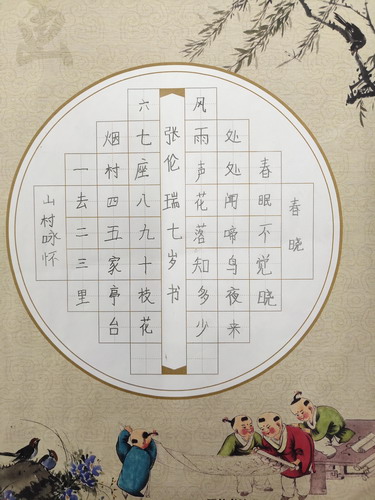 春晓
春眠不觉晓
处处闻啼鸟夜来
风雨声花落知多少
张伦瑞七岁书
六七座八九十枝花
烟村四五家亭台
一去二三里
山村咏怀